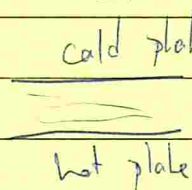 cold pla
hot plate